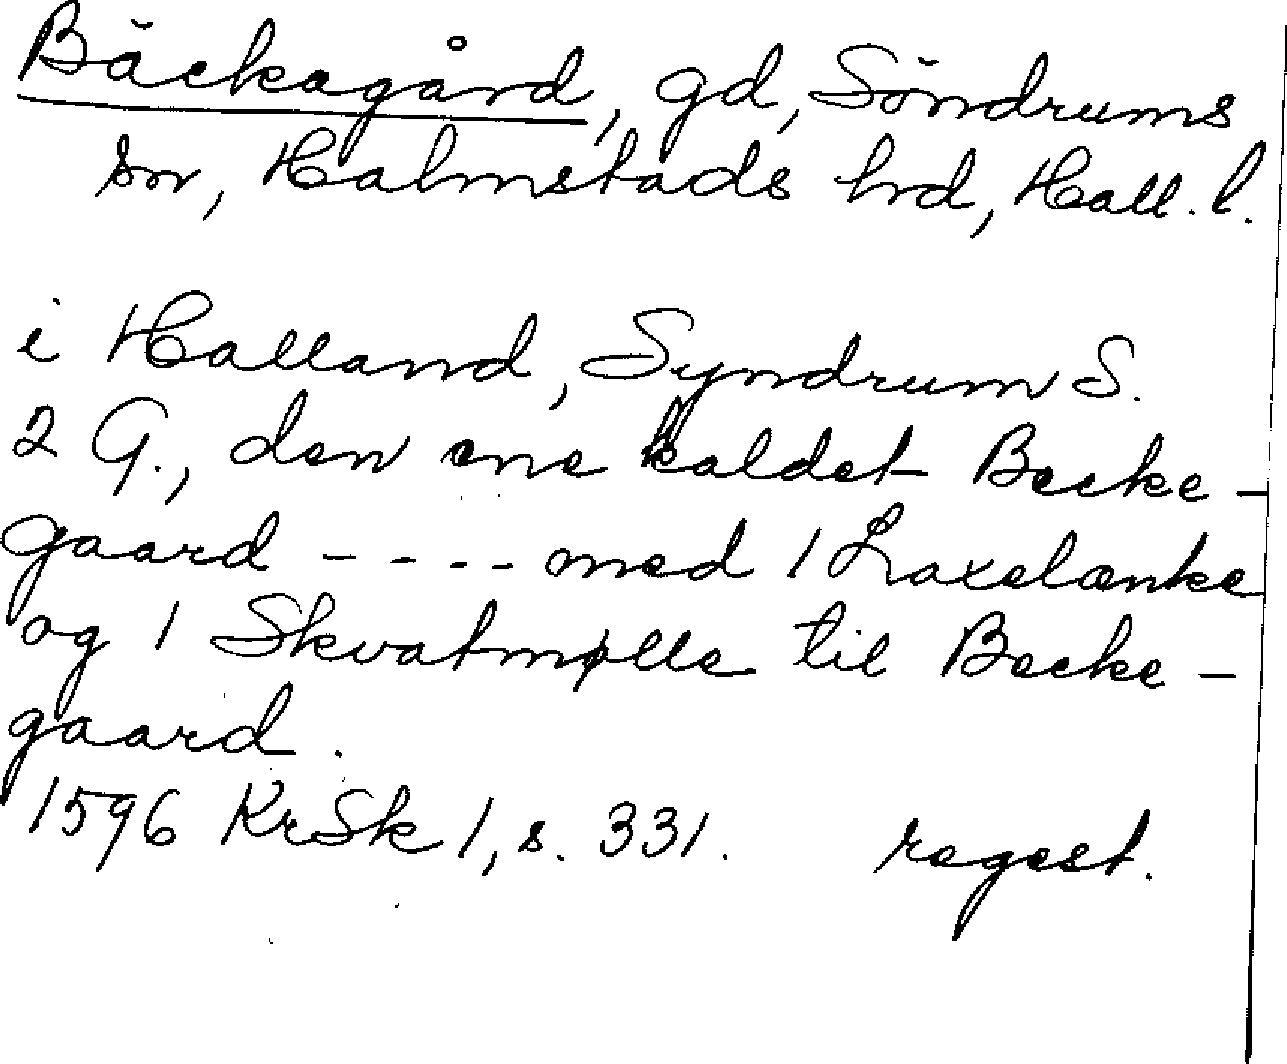 Bäckagård, gd, Söndrums
sn, Halmstads hrd, Hall. l.
i Halland, Syndrum S.
2 G., den ene kaldet Becke-
gaard - - - - med 1 Laxelænke
og 1 Skvatmølle til Becke-
gaard.
1596 KrSk 1, s. 331. regest.